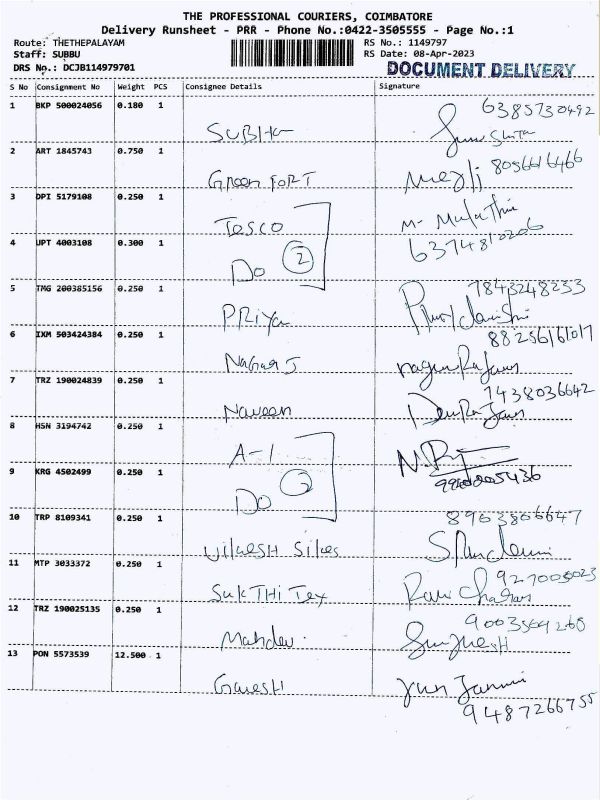 THE PROFESSIONAL COURIERS, COIMBATORE
Delivery Runsheet - PRR - Phone No.:0422-3505555 - Page No.:1
Route: THETHEPALAYAM
RS No.: 1149797
Staff: SUBBU
RS Date: 08-Apr-2023
DRS No.: DCJB114979701
DOCUMENT DELIVERY
S No Consignment No Weight PCS Consignee Details Signature
1 BKP 500024056 0.180 1 6385730492
SUBHA
2 ART 1845743 0.750 1 8056616466
Green FORT
3 DPI 5179108 0.250 1
TESCO
4 JPT 4003108 0.300 1 6374810206
Do 2
5 TMG 200385156 0.250 1 7843248233
PRIya
6 IXM 503424384 0.250 1
Nagaraj
7 TRZ 190024839 0.250 1 7438036642
Naveen
8 HSN 3194742 0.250 1
A-1
9 KRG 4502499 0.250 1
Do
10 TRP 8109341 0.250 1 8963806647
Vikaesh Silks
11 MTP 3033372 0.250 1
SukTHi Tex
12 TRZ 190025135 0.250 1
Mahdev
13 PON 5573539 12.500 1
Ganesh
9487266755